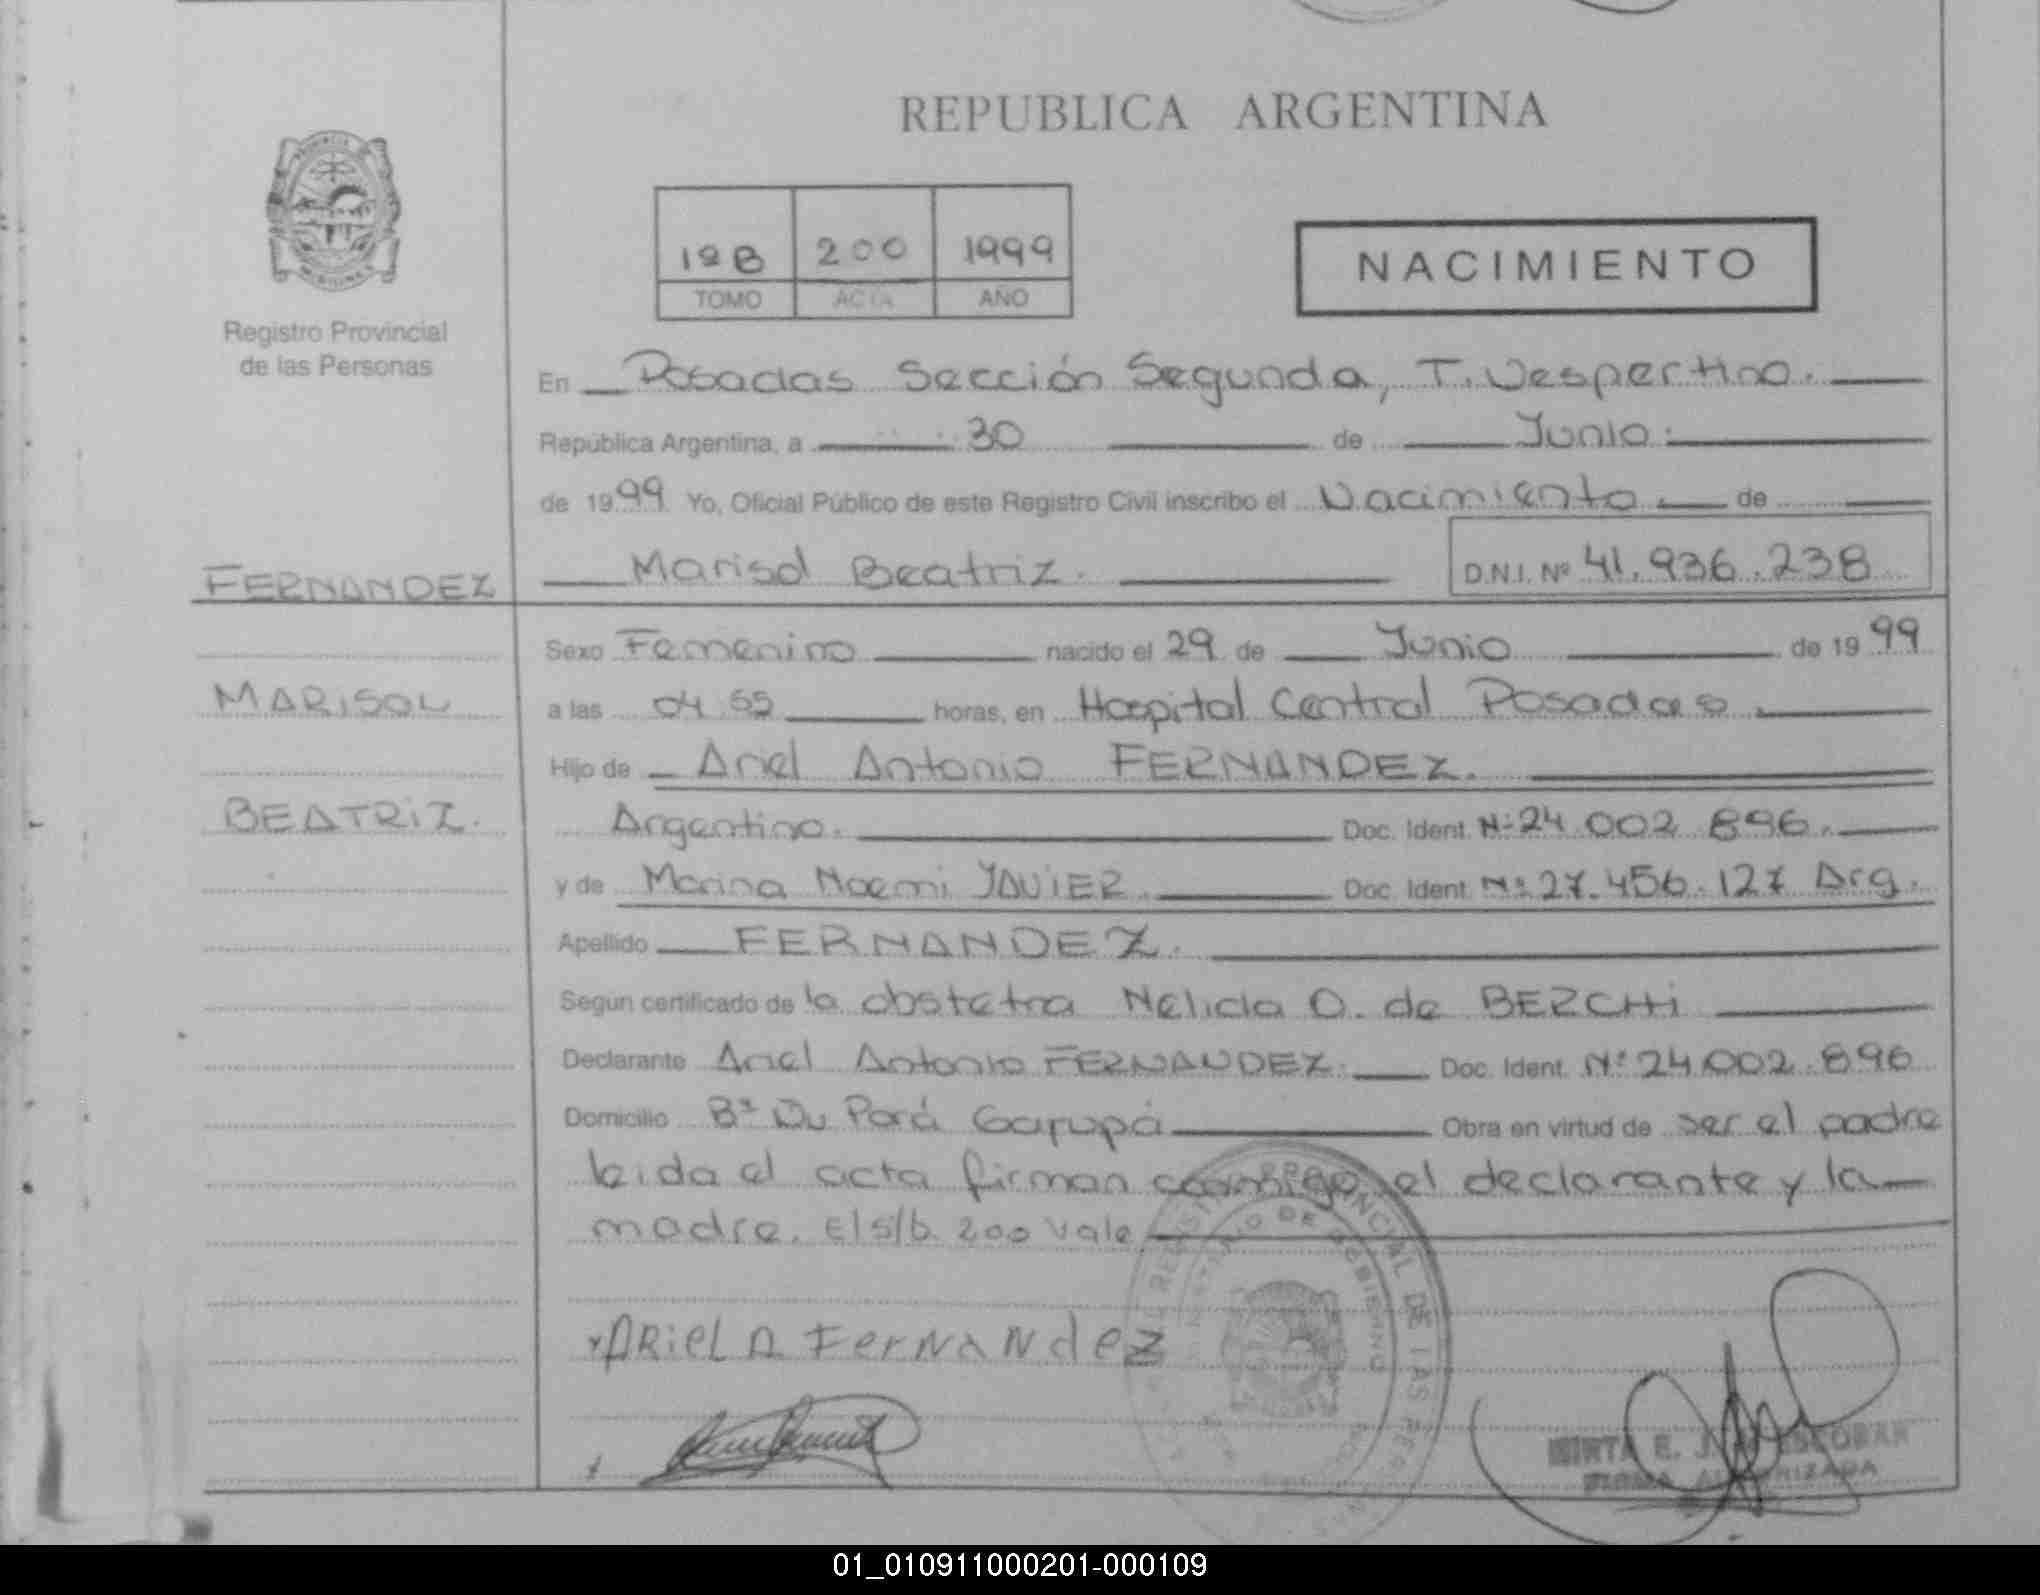 REPUBLICA ARGENTINA
1º B 200 1999
TOMO ACTA AÑO
NACIMIENTO
Registro Provincial
de las Personas
En Posadas Sección Segunda, T. Vespertino.
República Argentina, a 30 de Junio.
de 1999 Yo, Oficial Público de este Registro Civil inscribo el Nacimiento de
Marisol Beatriz. D.N.I. Nº 41.936.238
FERNANDEZ
MARISOL
BEATRIZ.
Sexo Femenino nacido el 29 de Junio de 1999
a las 04 55 horas, en Hospital Central Posadas.
Hijo de Ariel Antonio FERNANDEZ.
Argentino. Doc. Ident. Nº 24 002 896.
y de Marina Noemi JAVIER Doc. Ident. Nº 27.456.127 Arg.
Apellido FERNANDEZ.
Segun certificado de la obstetra Nelida O. de BERCHI
Declarante Ariel Antonio FERNANDEZ. Doc. Ident. Nº 24.002.896
Domicilio Bº Garupá Obra en virtud de ser el padre
leida el acta firman conmigo el declarante y la
madre. E/s/b. 200 vale
ARieL A FerNANdeZ
MIRTA E. J. ESCOBAR
FIRMA AUTORIZADA
01_010911000201-000109